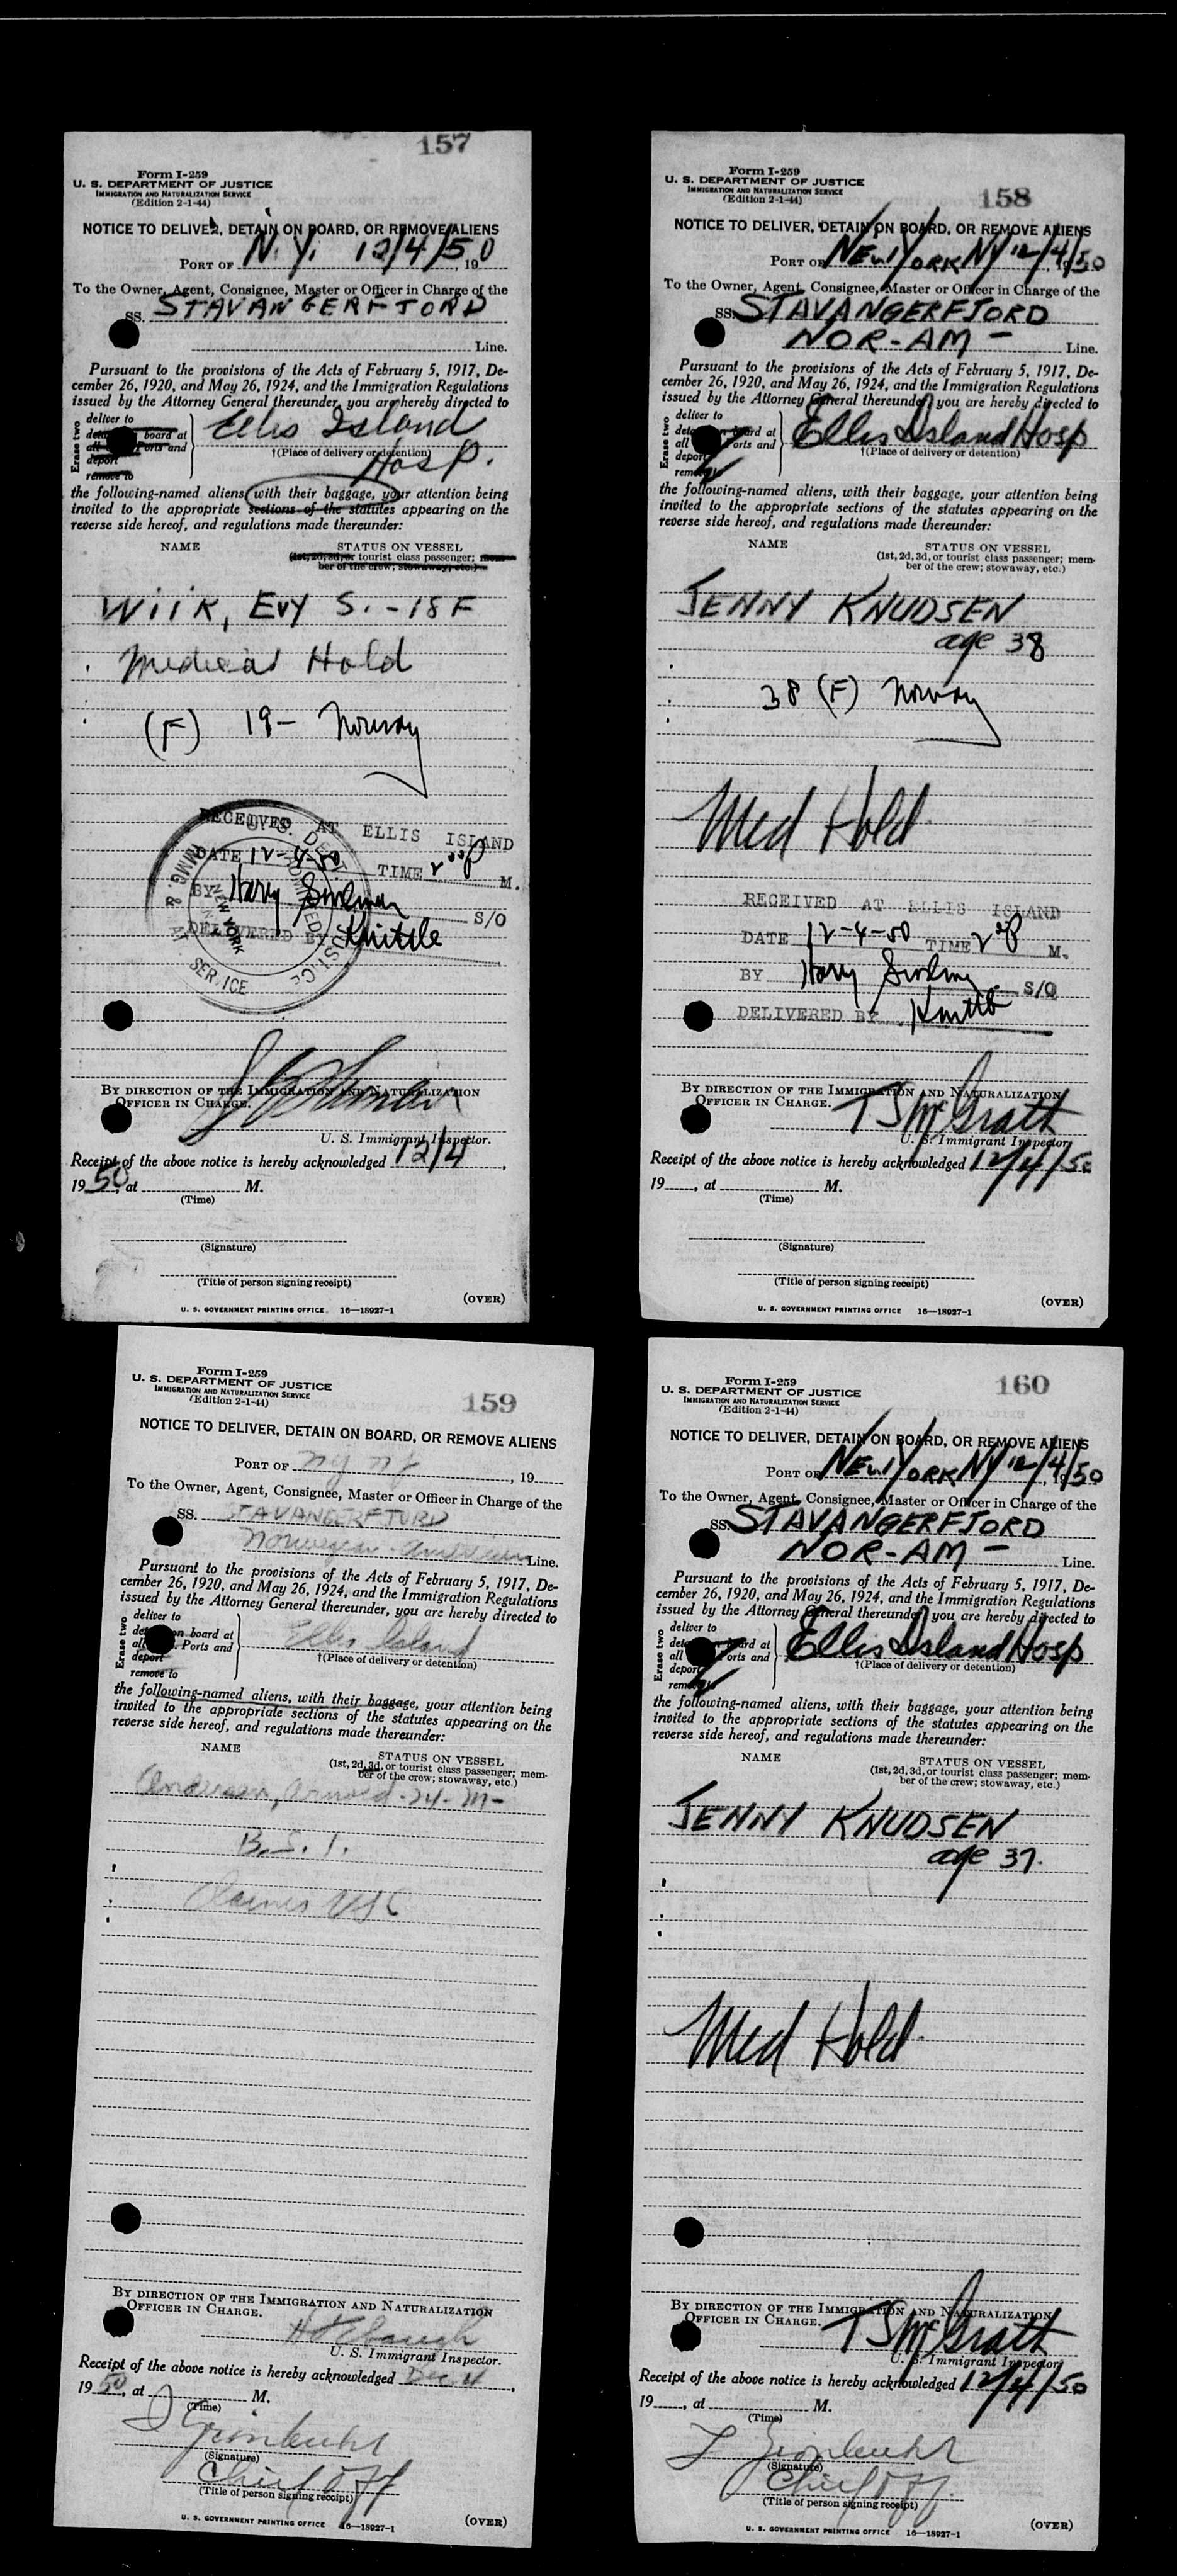 157
Form I-259
U. S. DEPARTMENT OF JUSTICE
IMMIGRATION AND NATURALIZATION SERVICE
(Edition 2-1-44)
NOTICE TO DELIVER, DETAIN ON BOARD, OR REMOVE ALIENS
PORT OF N.Y. 12/4/50, 19
To the Owner, Agent, Consignee, Master or Officer in Charge of the
SS. STAVANGERFJORD
Line.
Pursuant to the provisions of the Acts of February 5, 1917, De-
cember 26, 1920, and May 26, 1924, and the Immigration Regulations
issued by the Attorney General thereunder, you are hereby directed to
Erase two
deliver to
board at
all Ports and
deport
remove to
Ellis Island
†(Place of delivery or detention)
Hosp.
the following-named aliens, with their baggage, your attention being
invited to the appropriate sections of the statutes appearing on the
reverse side hereof, and regulations made thereunder:
NAME STATUS ON VESSEL
(1st, 2d, 3d, or tourist class passenger; mem-
ber of the crew; stowaway, etc.)
Wiik, Evy S. - 18 F
Medical Hold
(F) 19 - Norway
RECEIVED AT ELLIS ISLAND
DATE 12-4-50 TIME 2 00 P M.
BY Harry S/O
DELIVERED BY Knittle
U. S. DEPT. JUSTICE
IMMG. & SERVICE
ADMITTED
NEW YORK
BY DIRECTION OF THE IMMIGRATION AND NATURALIZATION
OFFICER IN CHARGE.
U. S. Immigrant Inspector.
Receipt of the above notice is hereby acknowledged 12/4,
1950, at M.
(Time)
(Signature)
(Title of person signing receipt)
(OVER)
U. S. GOVERNMENT PRINTING OFFICE 16—18927-1
158
Form I-259
U. S. DEPARTMENT OF JUSTICE
IMMIGRATION AND NATURALIZATION SERVICE
(Edition 2-1-44)
NOTICE TO DELIVER, DETAIN ON BOARD, OR REMOVE ALIENS
PORT OF NEW YORK NY 12/4/50
To the Owner, Agent, Consignee, Master or Officer in Charge of the
SS. STAVANGERFJORD
NOR-AM — Line.
Pursuant to the provisions of the Acts of February 5, 1917, De-
cember 26, 1920, and May 26, 1924, and the Immigration Regulations
issued by the Attorney General thereunder, you are hereby directed to
Erase two
deliver to
board at
all Ports and
deport
remove to
Ellis Island Hosp
†(Place of delivery or detention)
the following-named aliens, with their baggage, your attention being
invited to the appropriate sections of the statutes appearing on the
reverse side hereof, and regulations made thereunder:
NAME STATUS ON VESSEL
(1st, 2d, 3d, or tourist class passenger; mem-
ber of the crew; stowaway, etc.)
JENNY KNUDSEN
age 38
38 (F) Norway
Med Hold
RECEIVED AT ELLIS ISLAND
DATE 12-4-50 TIME 2 00 P M.
BY Harry S/O
DELIVERED BY Knittle
BY DIRECTION OF THE IMMIGRATION AND NATURALIZATION
OFFICER IN CHARGE. T S McGrath
U. S. Immigrant Inspector
Receipt of the above notice is hereby acknowledged 12/4/50
19, at M.
(Time)
(Signature)
(Title of person signing receipt)
(OVER)
U. S. GOVERNMENT PRINTING OFFICE 16—18927-1
159
Form I-259
U. S. DEPARTMENT OF JUSTICE
IMMIGRATION AND NATURALIZATION SERVICE
(Edition 2-1-44)
NOTICE TO DELIVER, DETAIN ON BOARD, OR REMOVE ALIENS
PORT OF NY NY, 19
To the Owner, Agent, Consignee, Master or Officer in Charge of the
SS. STAVANGERFJORD
Norwegian-American Line.
Pursuant to the provisions of the Acts of February 5, 1917, De-
cember 26, 1920, and May 26, 1924, and the Immigration Regulations
issued by the Attorney General thereunder, you are hereby directed to
Erase two
deliver to
on board at
all Ports and
deport
remove to
Ellis Island
†(Place of delivery or detention)
the following-named aliens, with their baggage, your attention being
invited to the appropriate sections of the statutes appearing on the
reverse side hereof, and regulations made thereunder:
NAME STATUS ON VESSEL
(1st, 2d, 3d, or tourist class passenger; mem-
ber of the crew; stowaway, etc.)
Andersen, Arnold - 24 - M -
B.S.I.
Claims USC
BY DIRECTION OF THE IMMIGRATION AND NATURALIZATION
OFFICER IN CHARGE.
U. S. Immigrant Inspector.
Receipt of the above notice is hereby acknowledged Dec. 4,
1950, at M.
(Time)
(Signature)
Chief Off
(Title of person signing receipt)
U. S. GOVERNMENT PRINTING OFFICE 16—18927-1
(OVER)
160
Form I-259
U. S. DEPARTMENT OF JUSTICE
IMMIGRATION AND NATURALIZATION SERVICE
(Edition 2-1-44)
NOTICE TO DELIVER, DETAIN ON BOARD, OR REMOVE ALIENS
PORT OF NEW YORK NY 12/4/50
To the Owner, Agent, Consignee, Master or Officer in Charge of the
SS. STAVANGERFJORD
NOR-AM — Line.
Pursuant to the provisions of the Acts of February 5, 1917, De-
cember 26, 1920, and May 26, 1924, and the Immigration Regulations
issued by the Attorney General thereunder, you are hereby directed to
Erase two
deliver to
board at
all Ports and
deport
remove to
Ellis Island Hosp
†(Place of delivery or detention)
the following-named aliens, with their baggage, your attention being
invited to the appropriate sections of the statutes appearing on the
reverse side hereof, and regulations made thereunder:
NAME STATUS ON VESSEL
(1st, 2d, 3d, or tourist class passenger; mem-
ber of the crew; stowaway, etc.)
JENNY KNUDSEN
age 37.
Med Hold
BY DIRECTION OF THE IMMIGRATION AND NATURALIZATION
OFFICER IN CHARGE. T S McGrath
U. S. Immigrant Inspector
Receipt of the above notice is hereby acknowledged 12/4/50
19, at M.
(Time)
(Signature)
Chief Off.
(Title of person signing receipt)
(OVER)
U. S. GOVERNMENT PRINTING OFFICE 16—18927-1